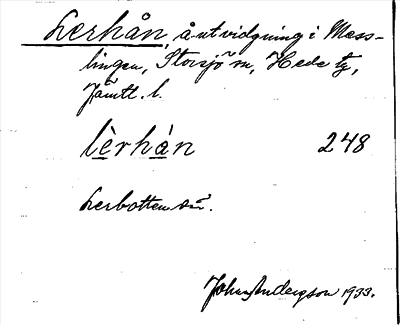 Lerhån, åutvidgning i Mess-
lingen, Storsjö sn, Hede tg,
Jämtl. l.
lèrhán 248
Lerbotten där.
John Anderzson 1933.